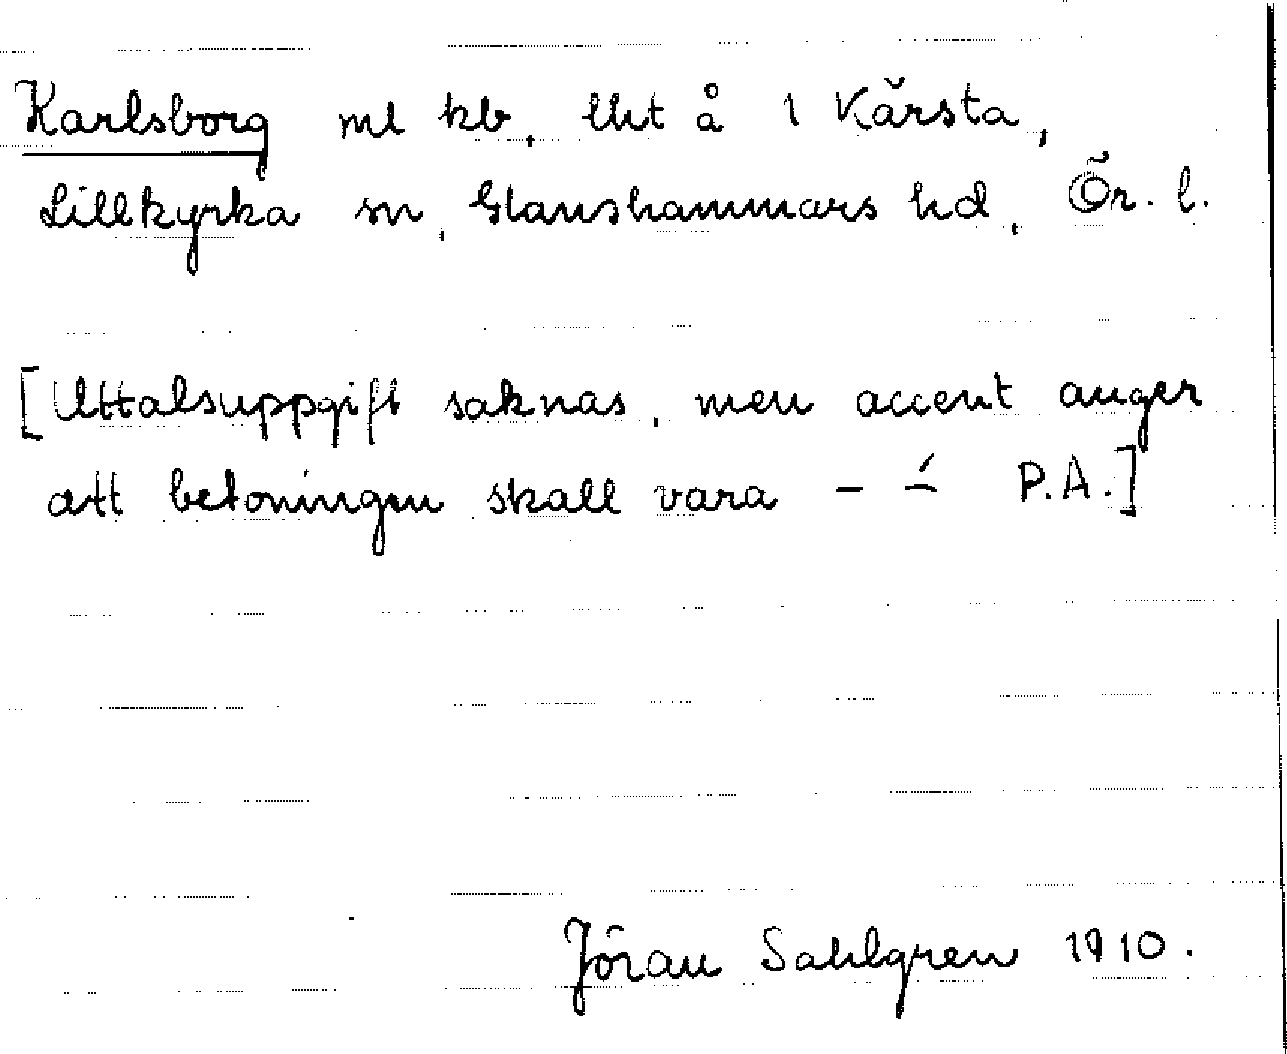 Karlsborg ml kb, lht å 1 Kärsta,
Lillkyrka sn, Glanshammars hd, Ör. l.
[Uttalsuppgift saknas, men accent anger
att betoningen skall vara – –́ P.A.]
Jöran Sahlgren 1910.